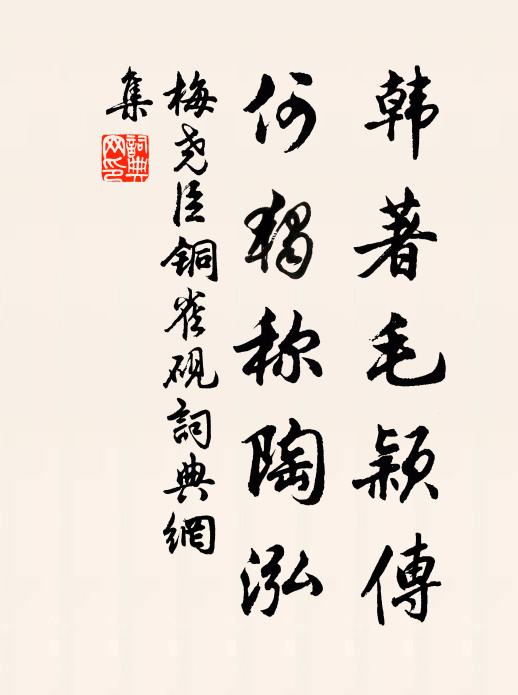 韩著毛颖傳
何独称陶泓
梅尧臣铜雀砚詞典網
集
詞典網印